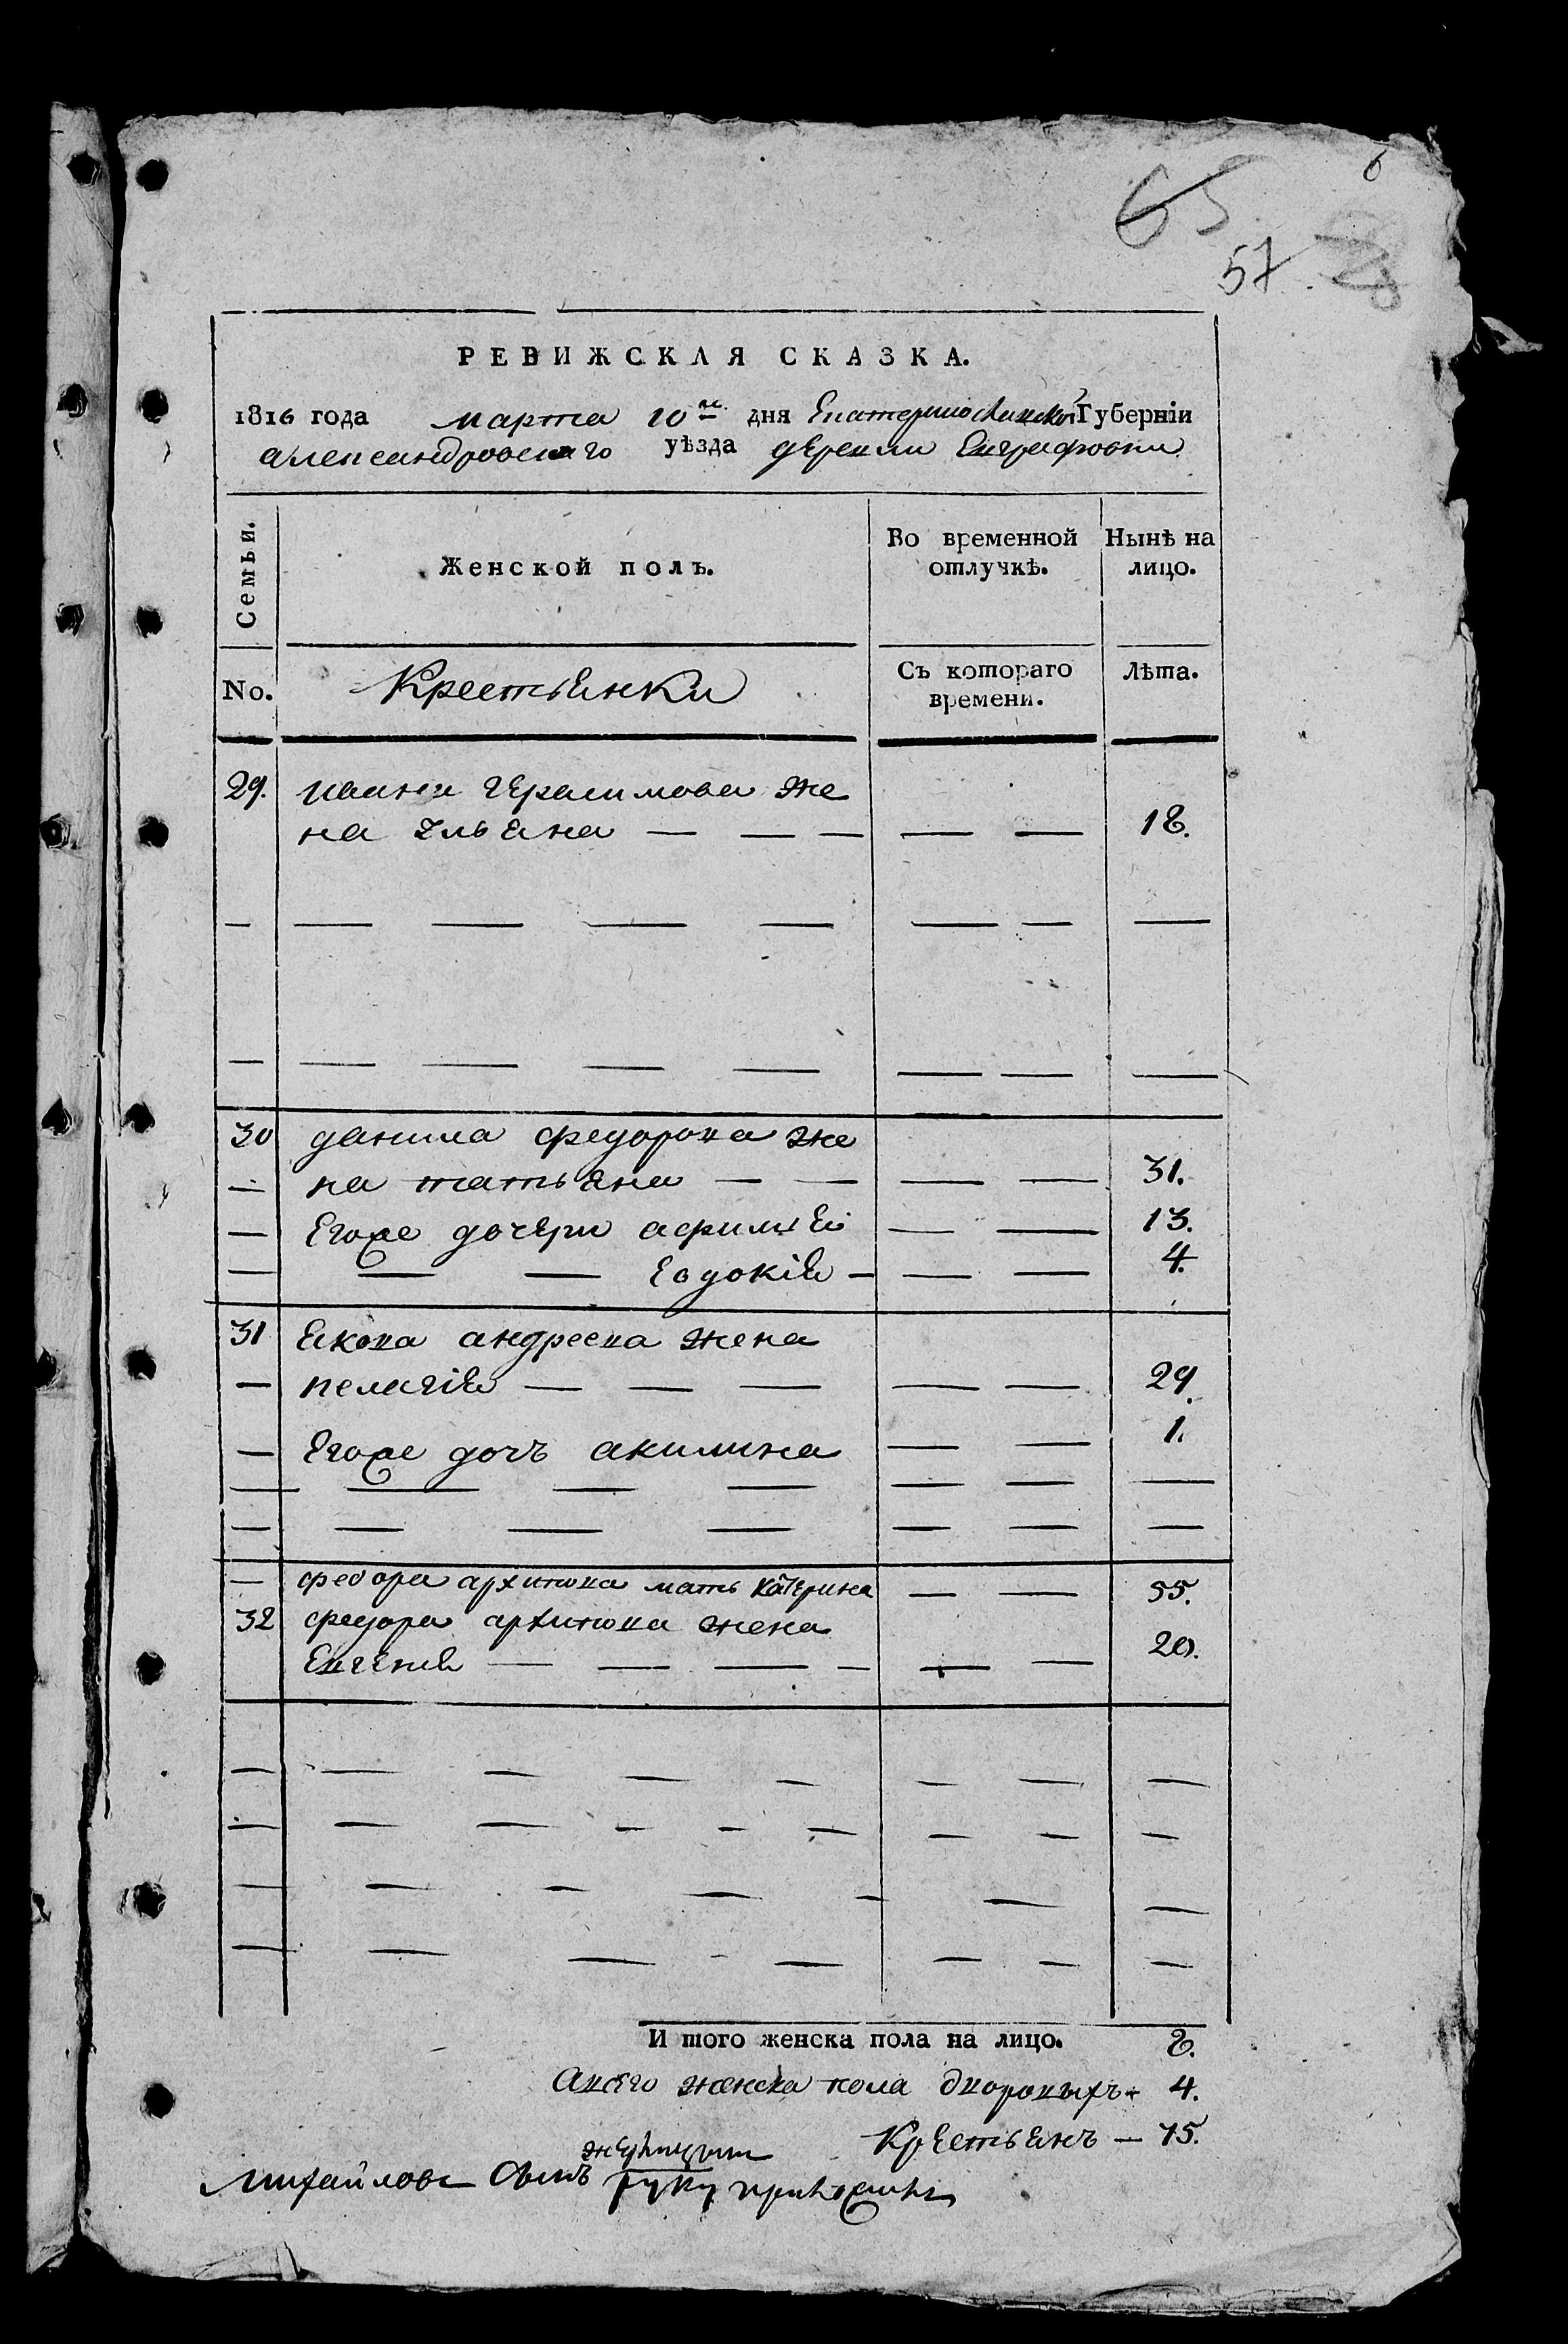 6
65
57.
РЕВИЖСКАЯ СКАЗКА.
1816 года марта 10го дня Екатеринославской Губерніи
александровскаго уѣзда деревни Евграфовки
Семьи.
Женской полъ.
Во временной отлучкѣ.
Нынѣ на лицо.
No.
Крестьянки
Съ котораго времени.
Лѣта.
29. ивана герасимова же
на ульяна — — — — — 18.
30 данила федорова же
— на татьяна — — — — 31.
— Егоже дочери афимія — — 13.
— — — Евдокія — — — 4.
31 якова андреева жена
— пелагія — — — — — 29.
— Егоже дочъ акилина — — 1.
— федора архипова мать катерина — — 55.
32 федора архипова жена
Евгенія — — — — — — 20.
И того женска пола на лицо. 8.
Авсего женска пола дворовыхъ 4.
Крестьянъ — 75.
михайловъ сынъ
руку приложилъ